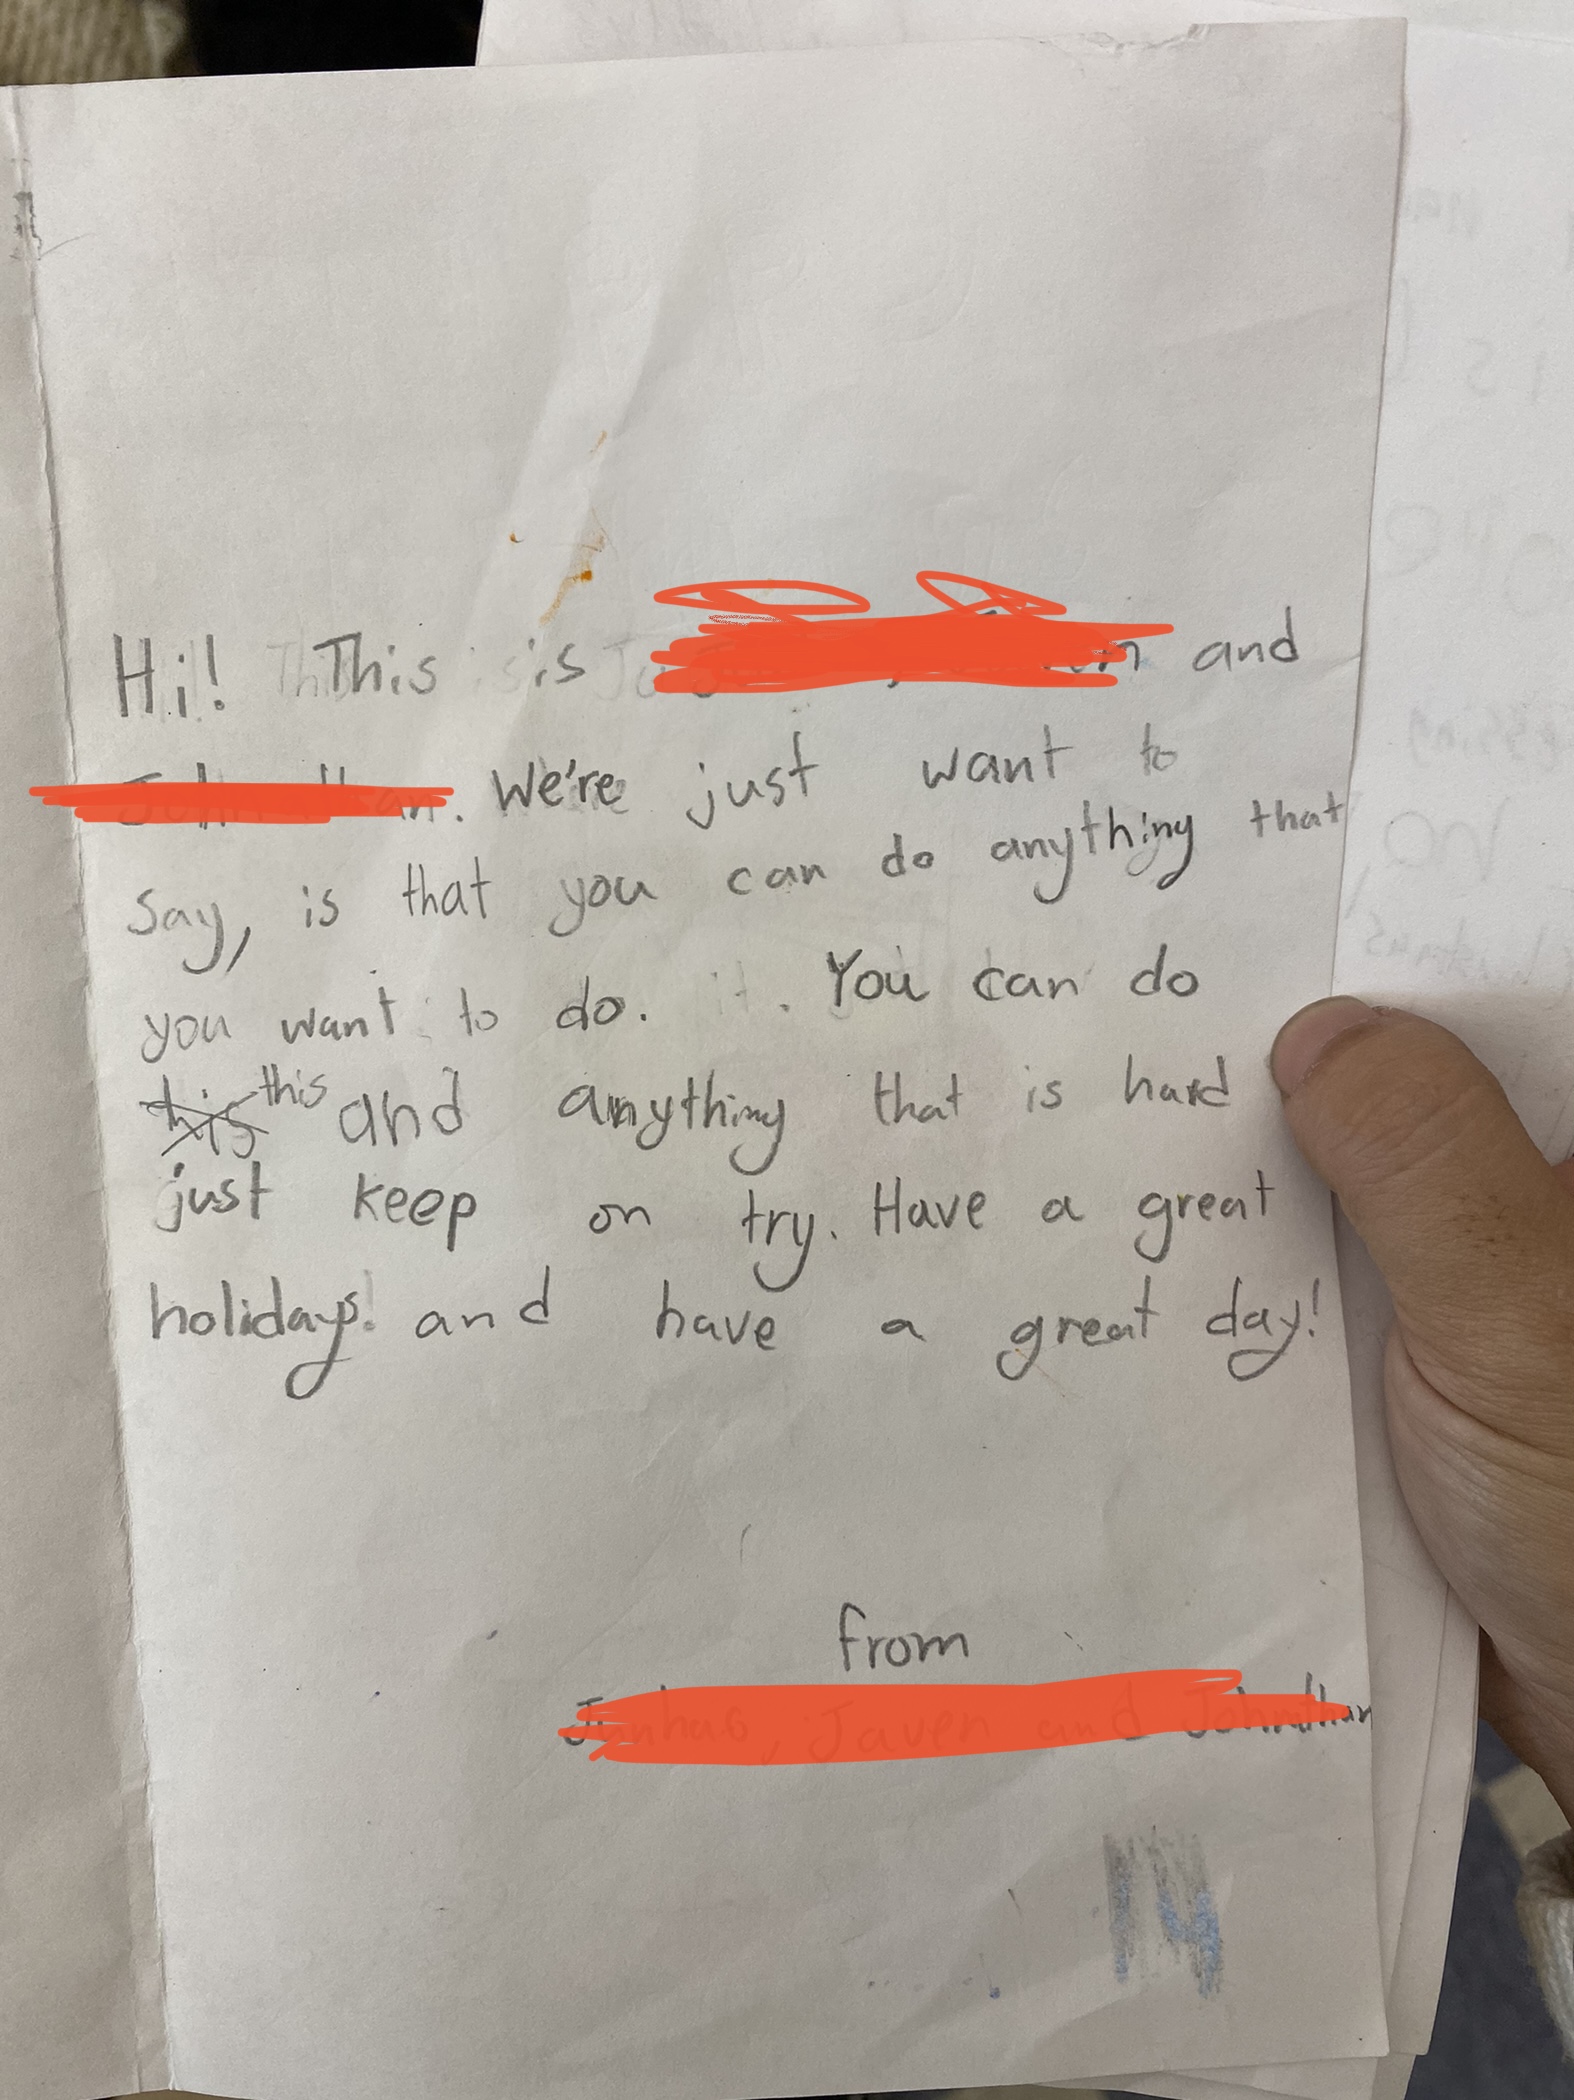 Hi! This is and
We're just want to
say, is that you can do anything that
you want to do. You can do
this this and anything that is hard
just keep on try. Have a great
holidays! and have a great day!
from